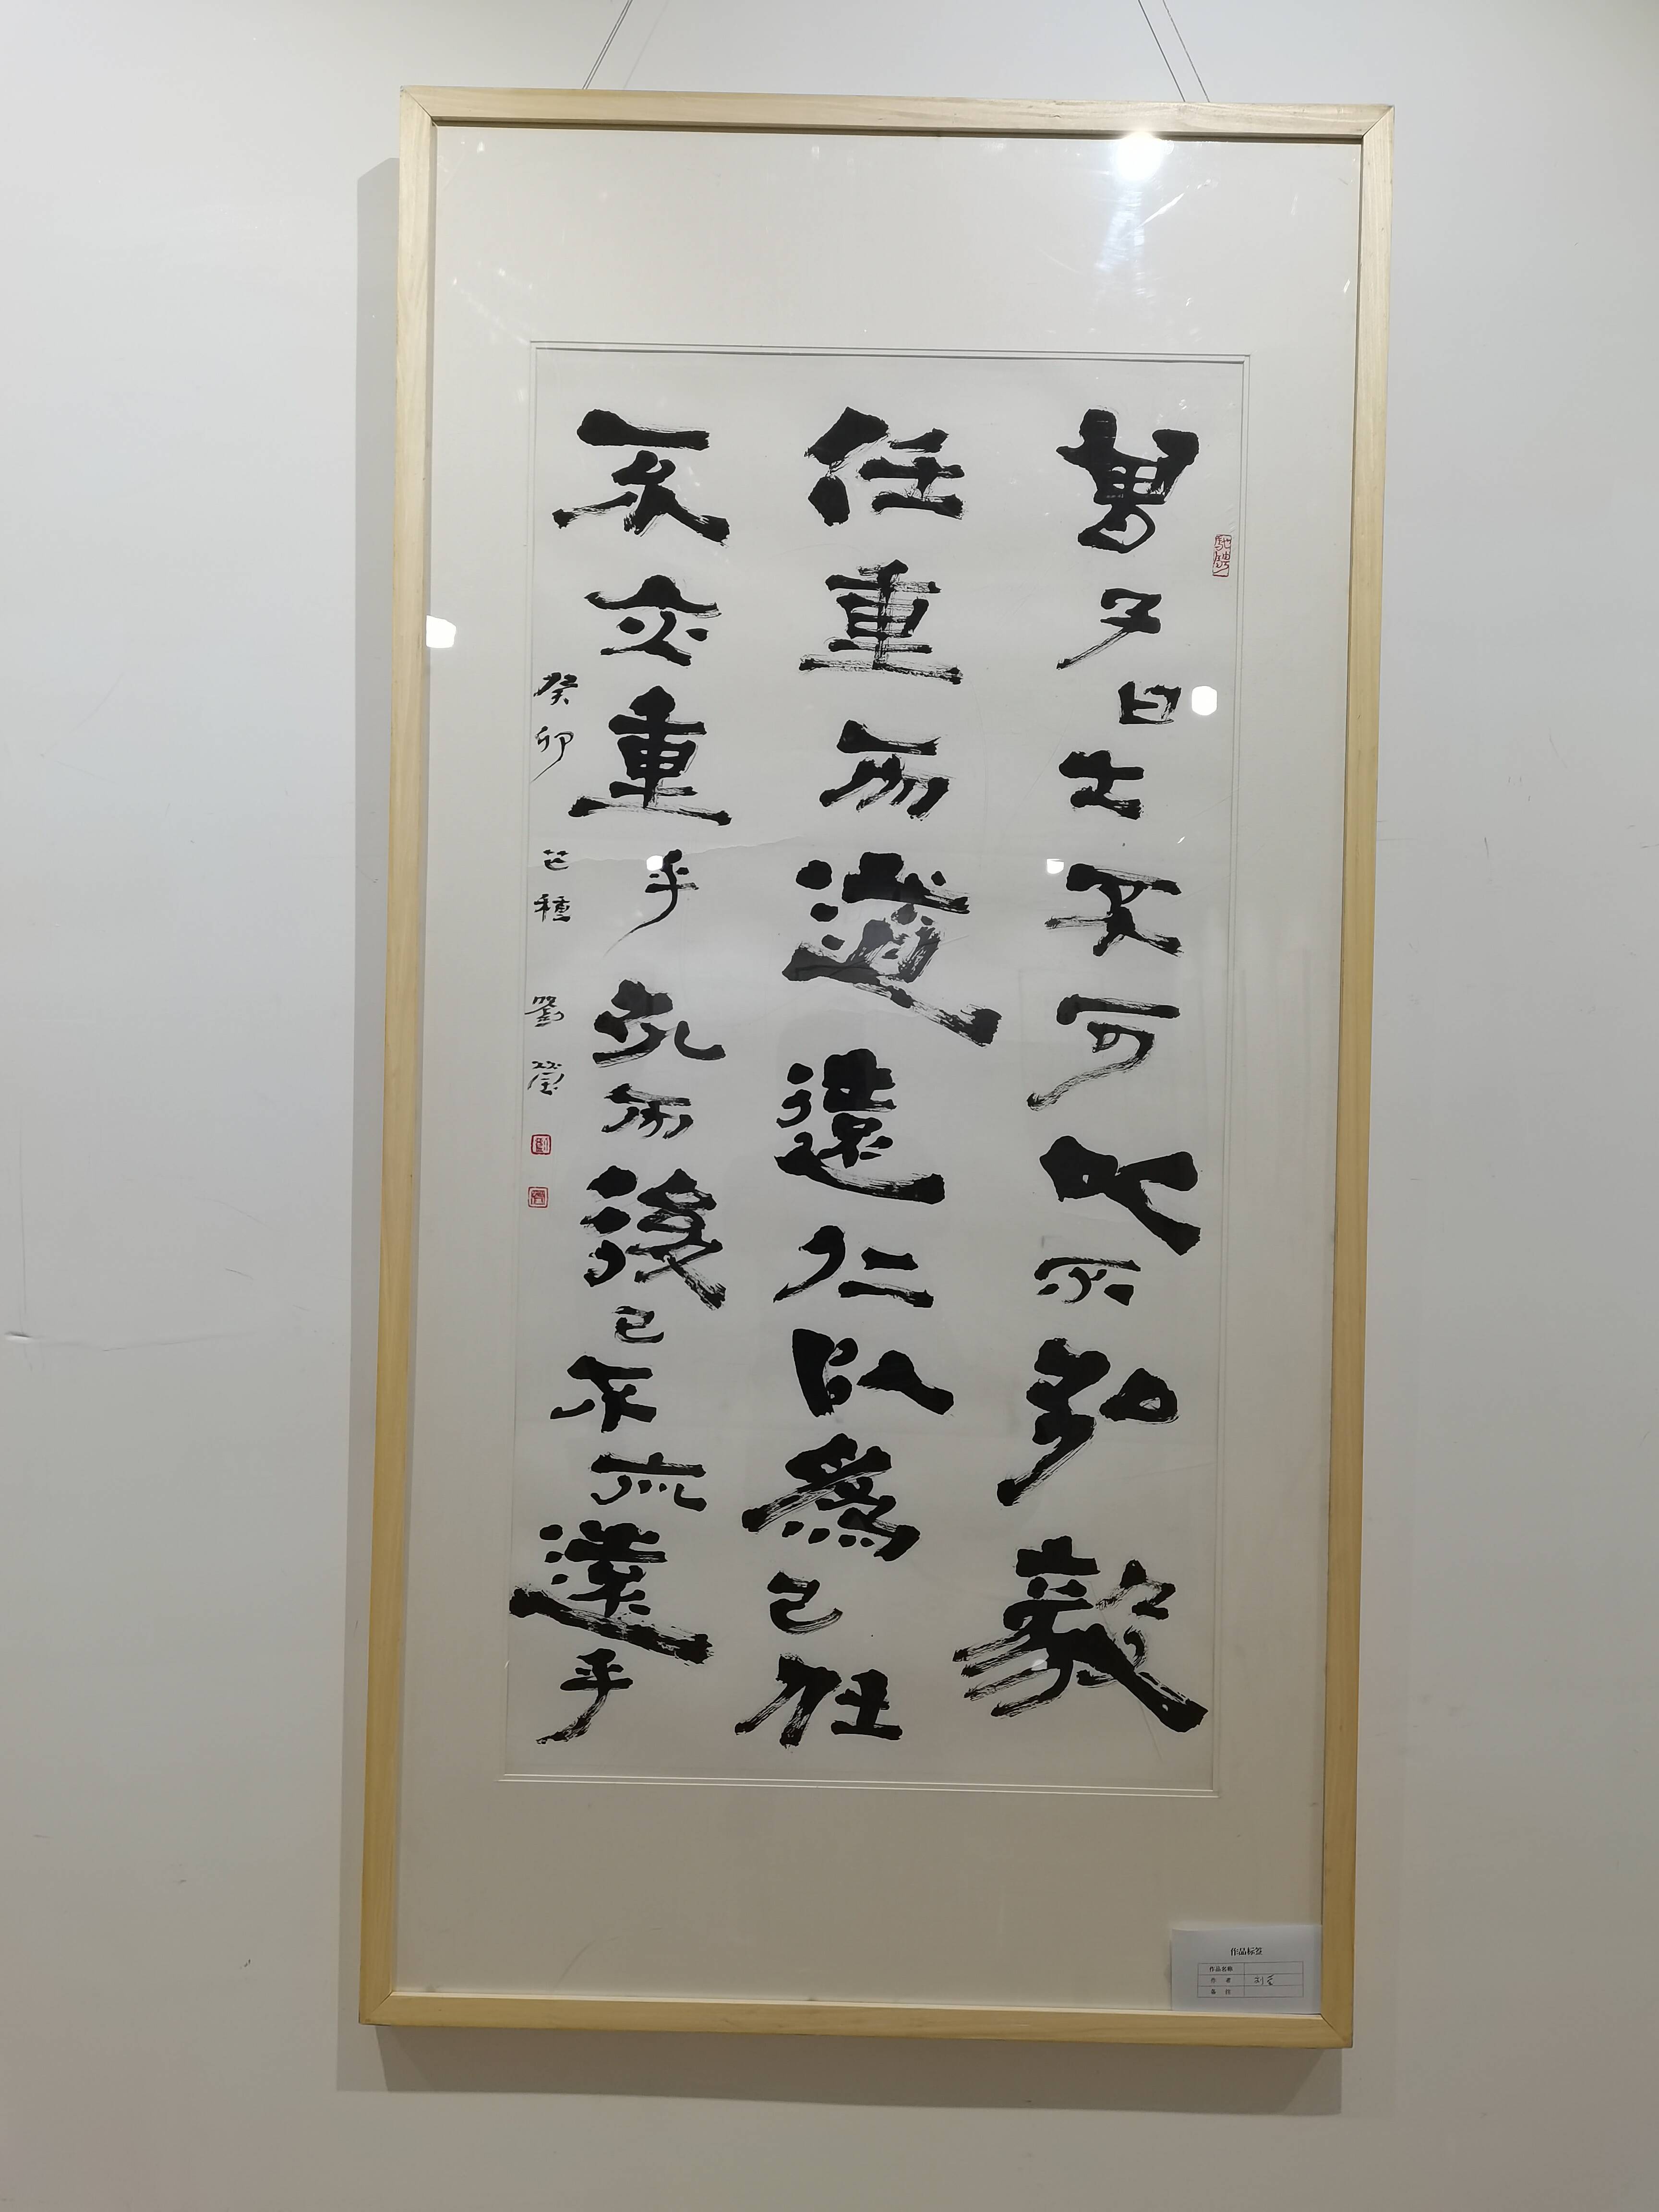 曾子曰士不可以不弘毅
任重而道遠仁以爲己任
不亦重乎死而後已不亦遠乎
癸卯 芒種 劉瑩
馳騁
作品标签
作品名称
作 者 刘莹
备 注